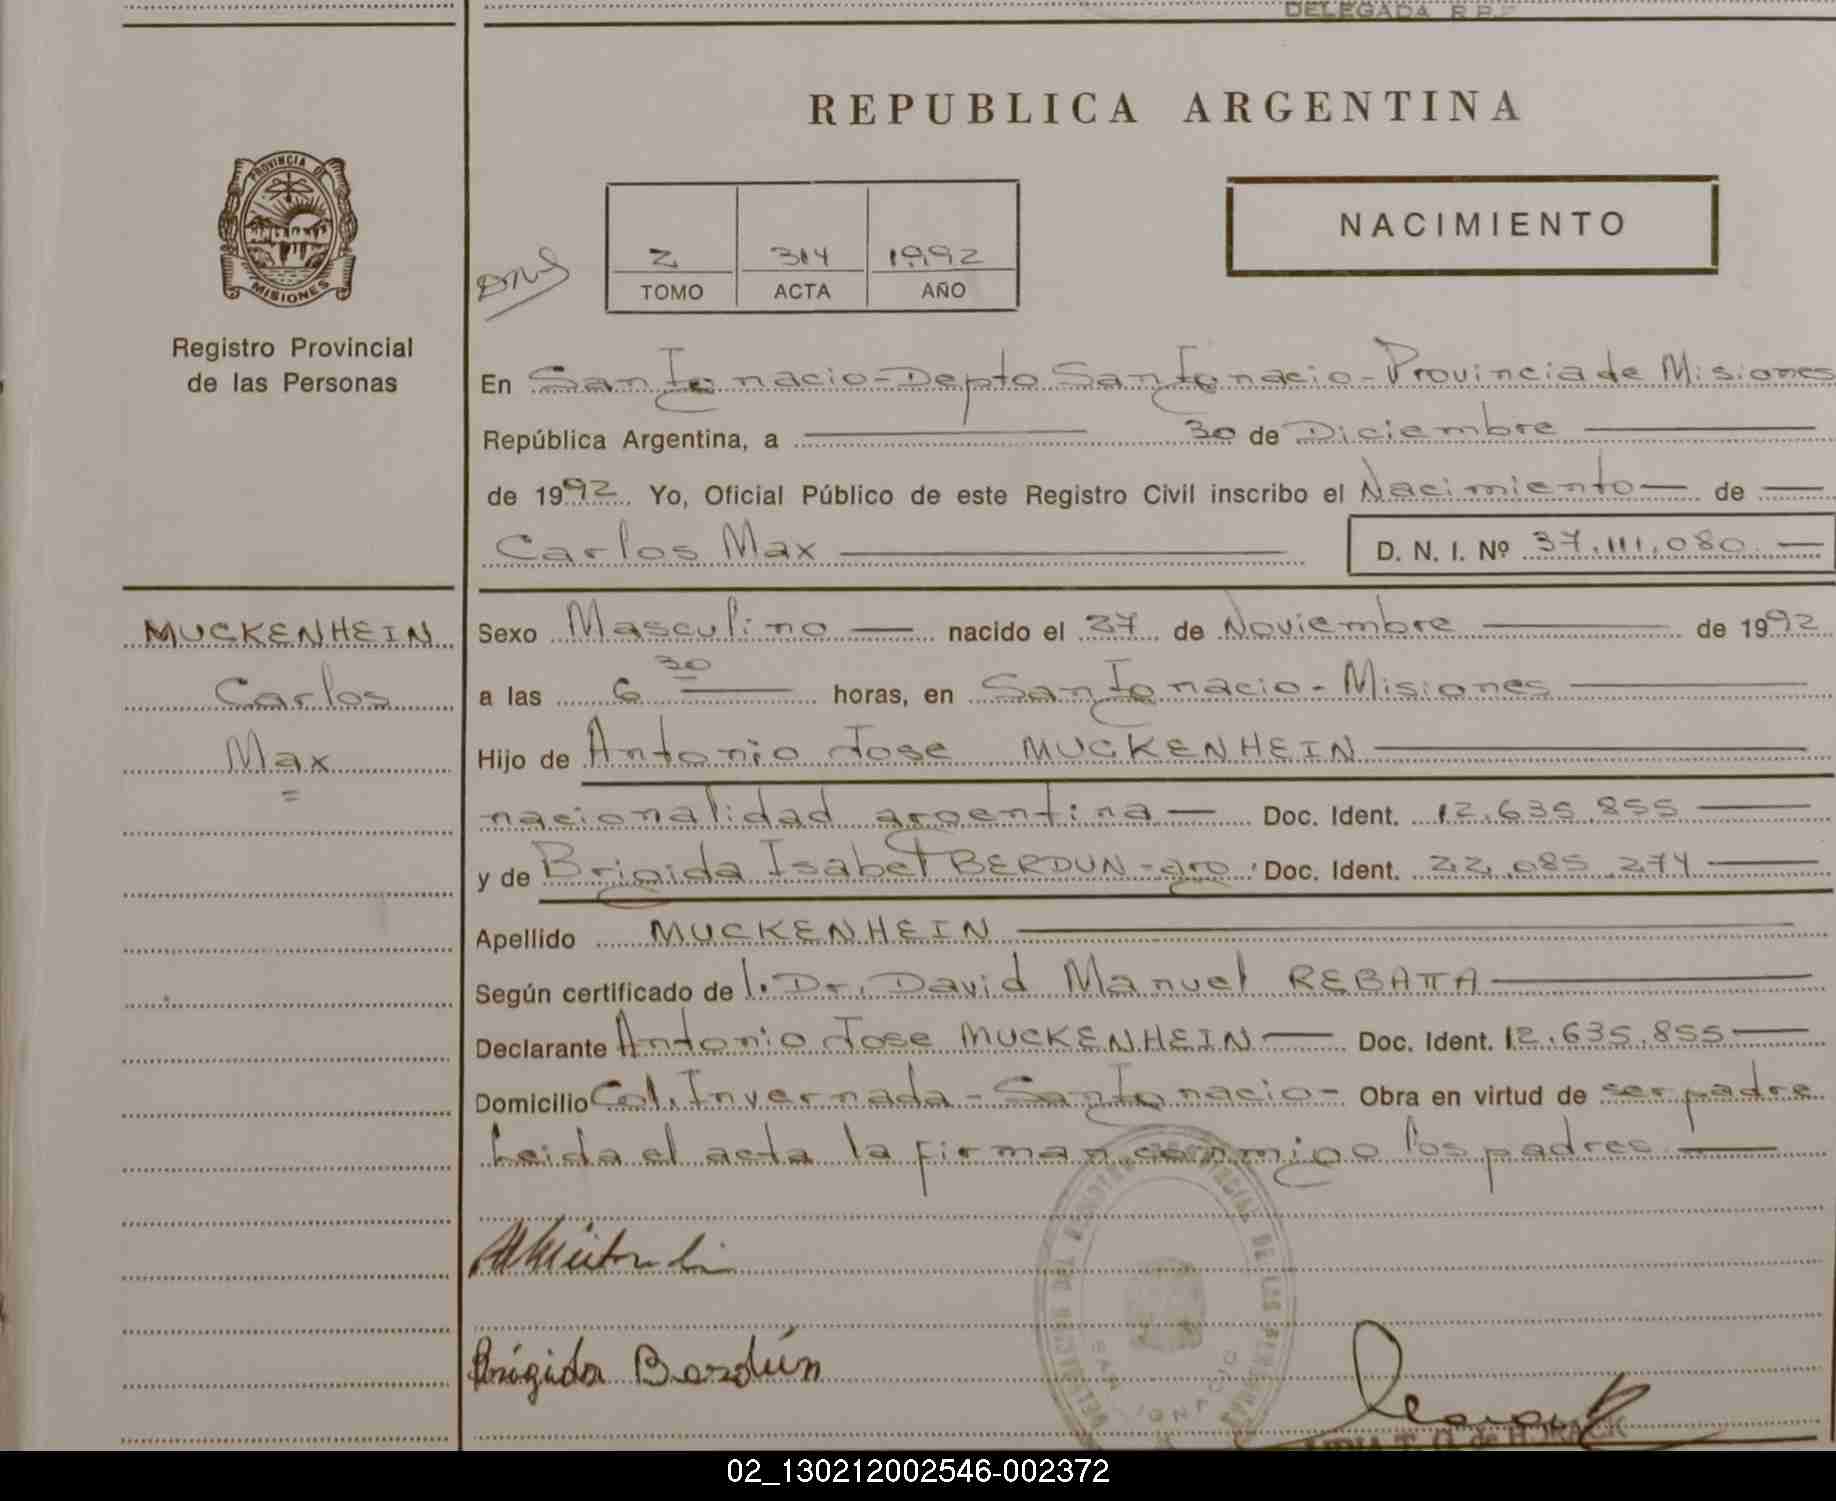 DELEGADA R.P.
REPUBLICA ARGENTINA
PROVINCIA DE
MISIONES
Registro Provincial
de las Personas
NACIMIENTO
2 314 1992
TOMO ACTA AÑO
En San Ignacio - Depto San Ignacio - Provincia de Misiones
República Argentina, a 30 de Diciembre
de 1992 Yo, Oficial Público de este Registro Civil inscribo el Nacimiento de
Carlos Max D. N. I. Nº 37.111.080
MUCKENHEIN
Carlos
Max
Sexo Masculino nacido el 27 de Noviembre de 1992
a las 6 30 horas, en San Ignacio - Misiones
Hijo de Antonio Jose MUCKENHEIN
nacionalidad argentina Doc. Ident. 12.635.855
y de Brigida Isabel BERDUN - arg. Doc. Ident. 22.085.274
Apellido MUCKENHEIN
Según certificado de l. Dr. David Manuel REBATTA
Declarante Antonio Jose MUCKENHEIN Doc. Ident. 12.635.855
Domicilio Col. Invernada - San Ignacio - Obra en virtud de ser padre
Leida el acta la firman conmigo los padres
Brígida Berdún
SAN IGNACIO
02_130212002546-002372